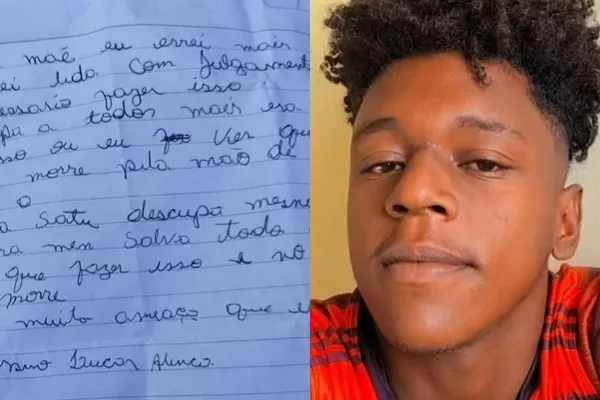 mãe eu errei mais
ei tudo. Com julgamento
essario fazer isso i
pa a todos mais era
sso ou eu ver que
morre pela mão de
o
a satu descupa mesmo
ra men salva todo
que fazer isso e
morre
muito ameaça que e
Lucas